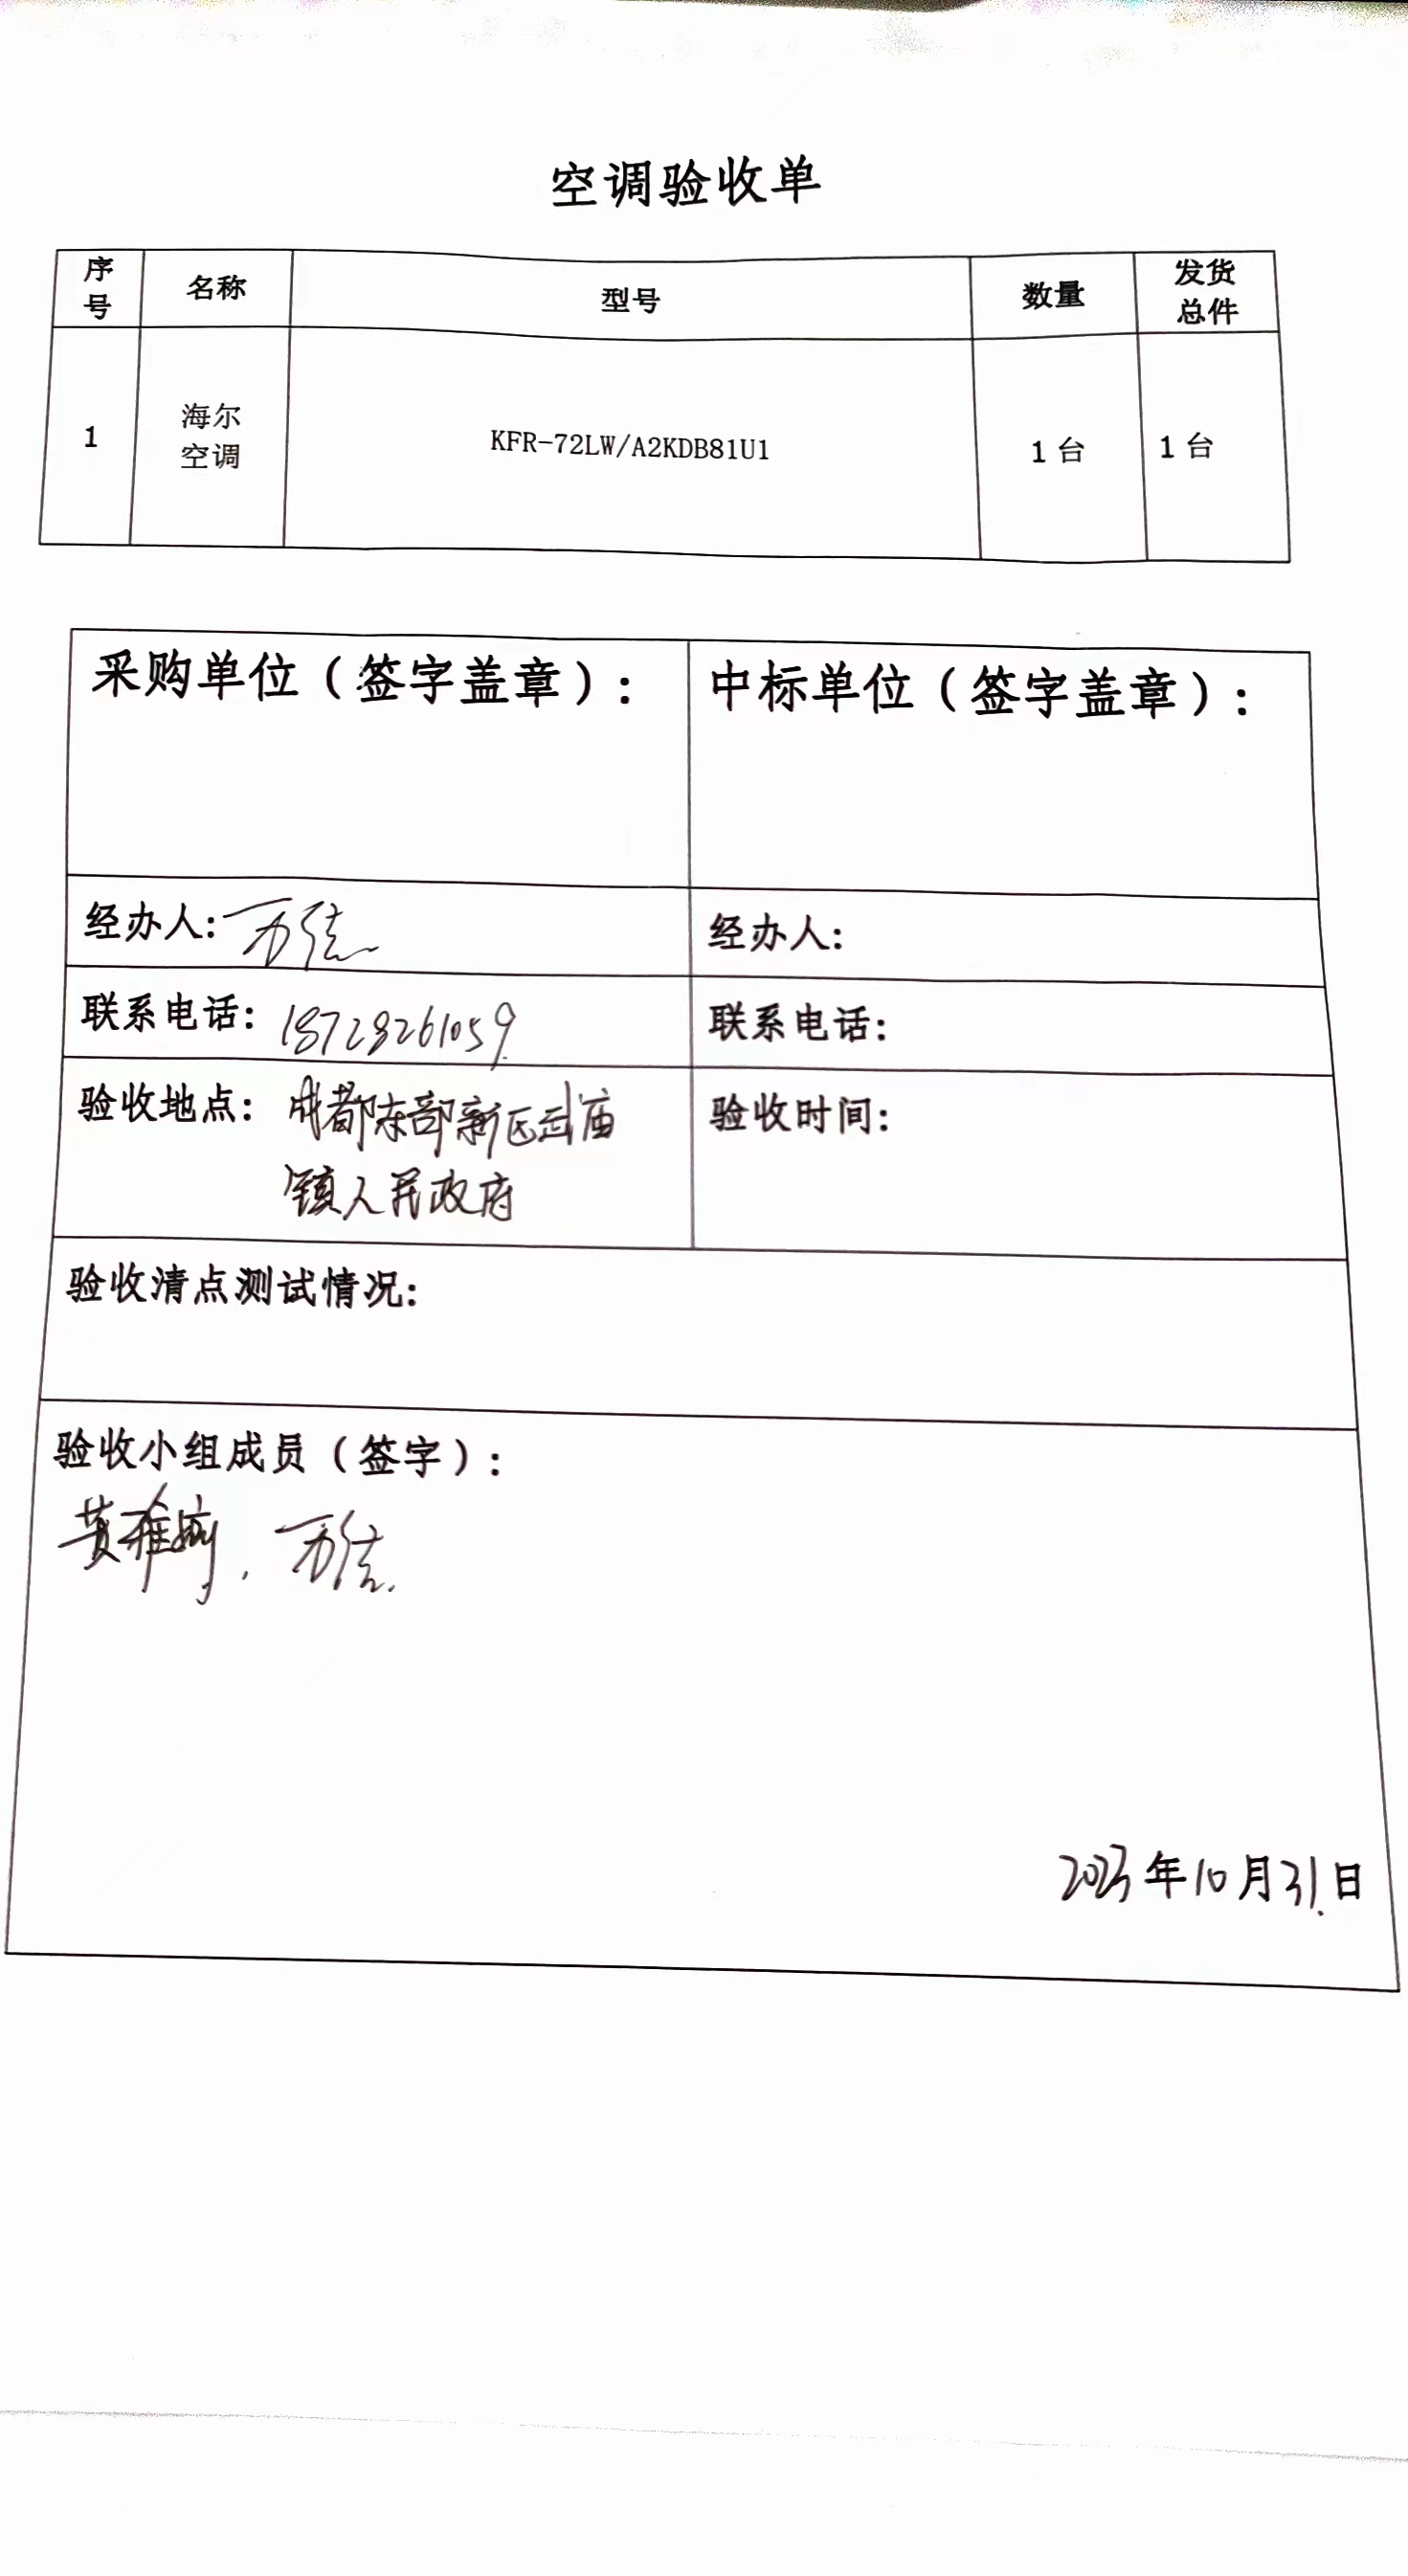 空调验收单
序号 名称 型号 数量 发货总件
1 海尔空调 KFR-72LW/A2KDB81U1 1台 1台
采购单位（签字盖章）： 中标单位（签字盖章）：
经办人： 经办人：
联系电话：18728261059 联系电话：
验收地点：成都东部新区武庙 验收时间：
镇人民政府
验收清点测试情况：
验收小组成员（签字）：
2023年10月31日